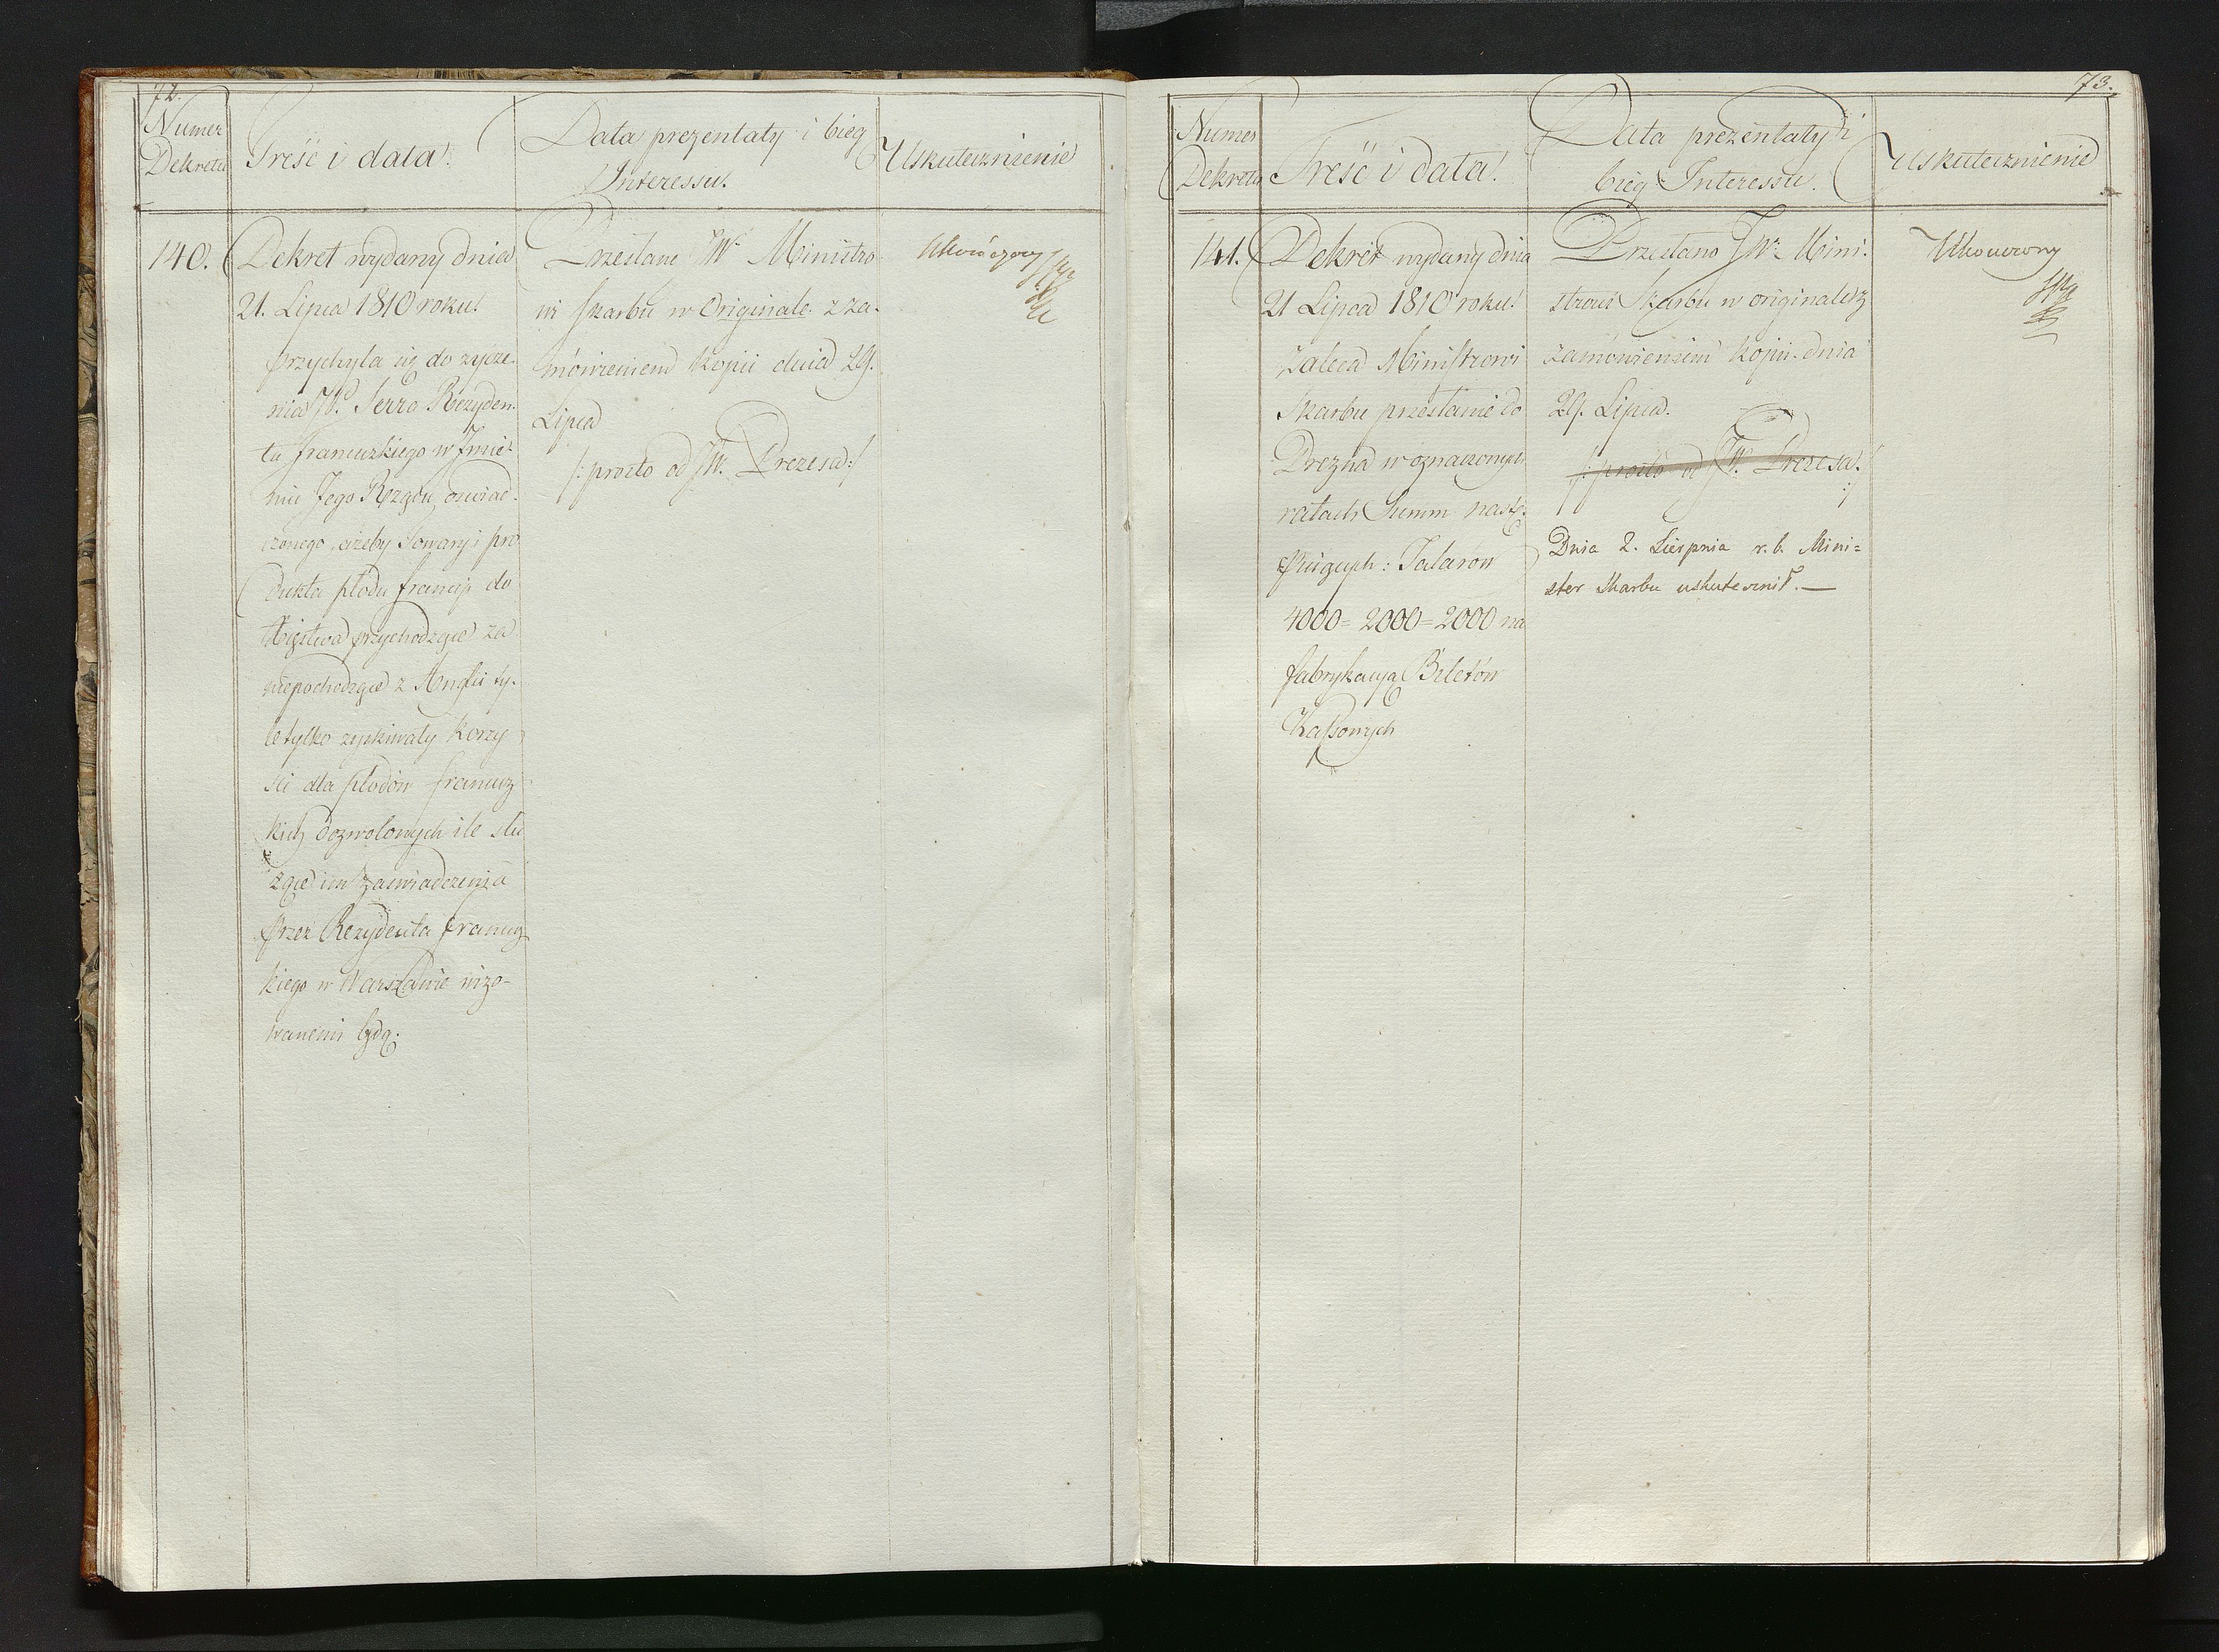 72.
Numer
Dekretu
Treść i data.
Data prezentaty i bieg
Interessu.
Uskutecznienie
140.
Dekret wydany dnia
21. Lipca 1810 roku.
przychyla się do życze-
nia JP. Serra Rezyden-
ta francuzkiego w Imie-
niu Jego Rządu, oświad-
czonego, ażeby towary i pro
dukta płodu francuz. do
Xięstwa przychodzące za
niepochodzące z Anglii ty-
le tylko zyskiwały korzy
ści dla płodów francuz
kich dozwolonych ile słu
żące im zaświadczenia
przez Rezydenta francuz
kiego w Warszawie wizo-
wanemi będą.
Przesłane JW. Ministro
wi Skarbu w Originale z za-
mówieniem Kopii dnia 29.
Lipca
/: prosto od JW. Prezesa :/
Ukończony
73.
Numer
Dekretu
Treść i data.
Data prezentaty i
bieg Interessu.
Uskutecznienie
141.
Dekret wydany dnia
21 Lipca 1810 roku.
zaleca Ministrowi
Skarbu przesłanie do
Drezna w oznaczonych
ratach Summ nastę-
puiących: Talarow
4000 = 2000 = 2000 na
fabrykacyą Biletów
Kassowych
Przesłano JW. Mini-
strowi Skarbu w originale z
zamówieniem Kopii dnia
29. Lipca.
/: prosto od JW. Prezesa. :/
Dnia 2. Sierpnia r. b. Mini=
ster Skarbu uskutecznił. —
Ukończony